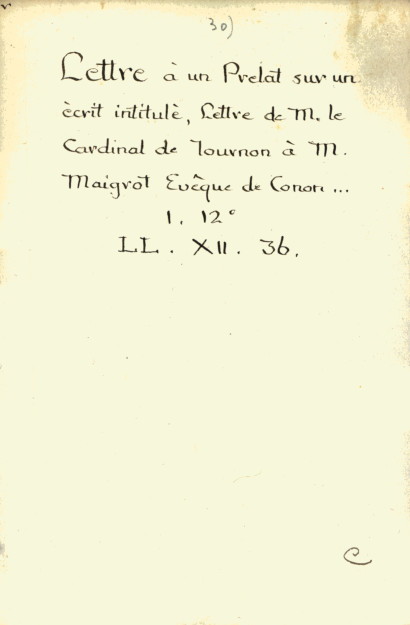 30)
Lettre à un Prelat sur un
ècrit intitulè, Lettre de M. le
Cardinal de Tournon à M.
Maigrot Evêque de Conon ...
1. 12°
LL. XII. 36.
C